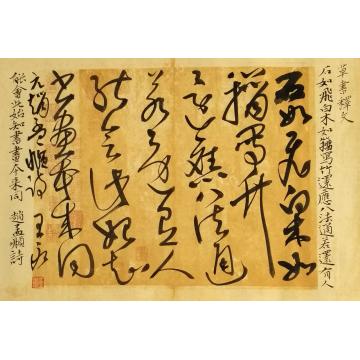 草書釋文
石如飛白木如籀寫竹還應八法通若還有人
石如飛白木如
籀寫竹
還應八法通
若還有人
能會此始知
書畫本來同
元趙孟頫詩 王
能會此始知書畫本來同 趙孟頫詩